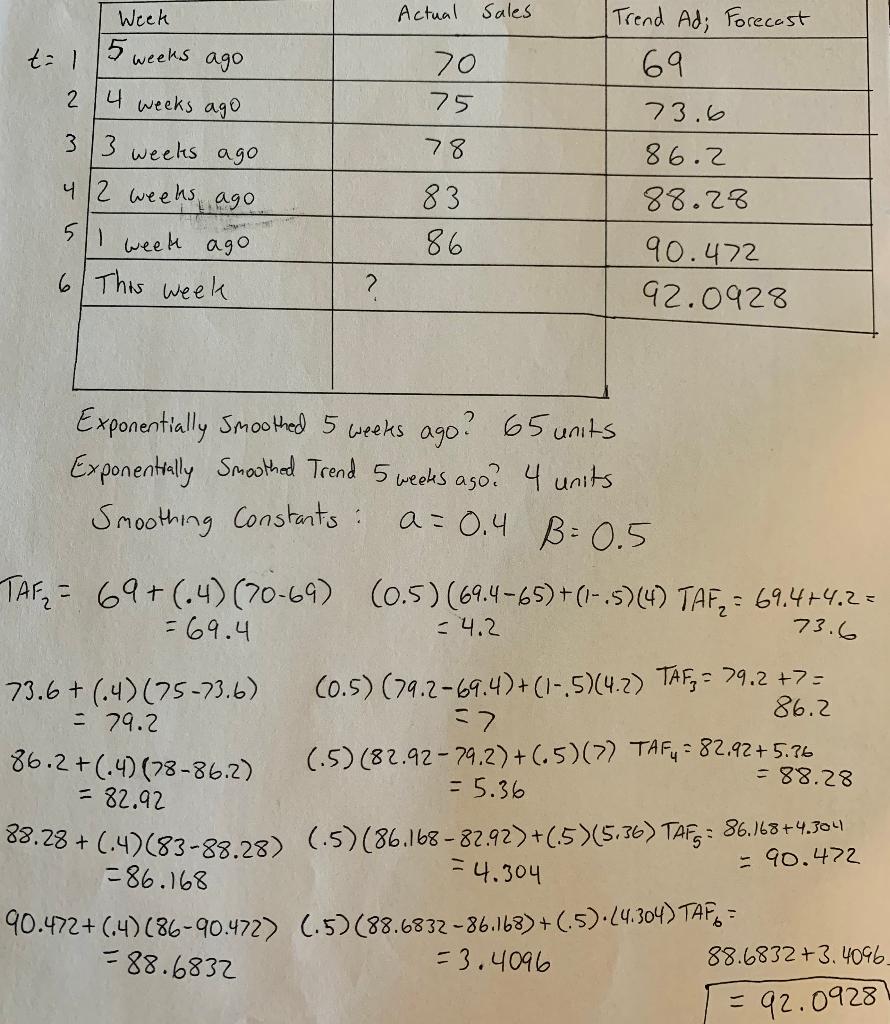 Week Actual Sales Trend Adj; Forecast
t= 1 5 weeks ago 70 69
2 4 weeks ago 75 73.6
3 3 weeks ago 78 86.2
4 2 weeks ago 83 88.28
5 1 week ago 86 90.472
6 This week ? 92.0928
Exponentially Smoothed 5 weeks ago? 65 units
Exponentially Smoothed Trend 5 weeks ago? 4 units
Smoothing Constants : a = 0.4 B = 0.5
TAF₂ = 69 + (.4)(70-69) (0.5)(69.4-65)+(1-.5)(4) TAF₂ = 69.4+4.2 =
= 69.4 = 4.2 73.6
73.6 + (.4)(75-73.6) (0.5)(79.2-69.4)+(1-.5)(4.2) TAF₃ = 79.2 +7 =
= 79.2 = 7 86.2
86.2 + (.4)(78-86.2) (.5)(82.92-79.2)+(.5)(7) TAF₄ = 82.92+5.36
= 82.92 = 5.36 = 88.28
88.28 + (.4)(83-88.28) (.5)(86.168-82.92)+(.5)(5.36) TAF₅ = 86.168+4.304
= 86.168 = 4.304 = 90.472
90.472 + (.4)(86-90.472) (.5)(88.6832-86.168)+(.5)·(4.304) TAF₆ =
= 88.6832 = 3.4096 88.6832+3.4096
= 92.0928